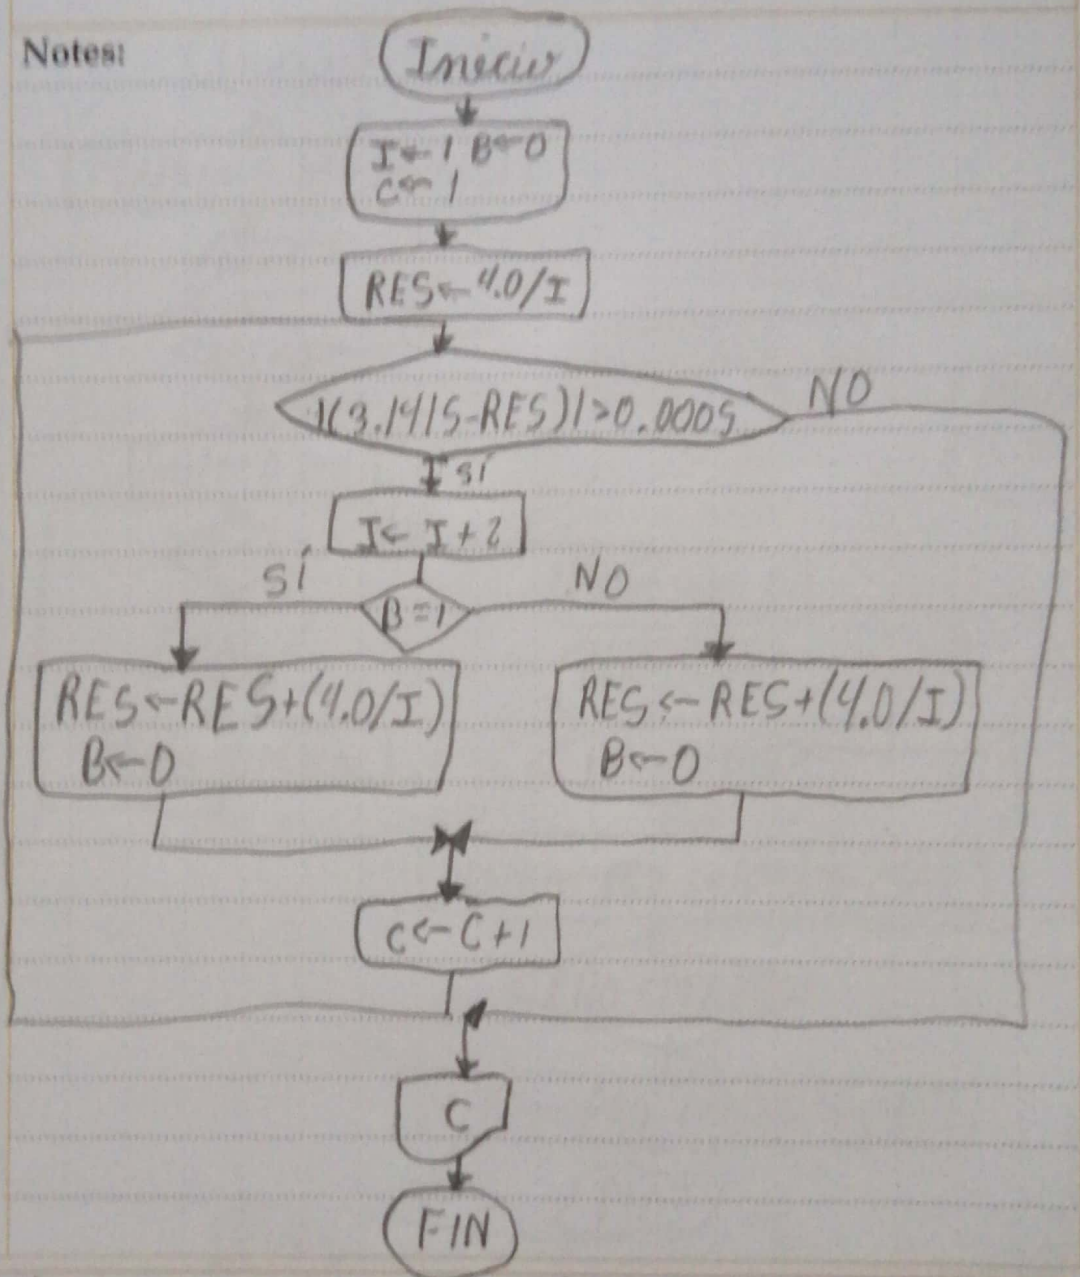 Notes:
Inicio
I←1 B←0
C←1
RES←4.0/I
|(3.1415-RES)|>0.0005
NO
SÍ
I←I+2
SÍ
NO
B=1
RES←RES+(4.0/I)
B←0
RES←RES+(4.0/I)
B←0
C←C+1
C
FIN